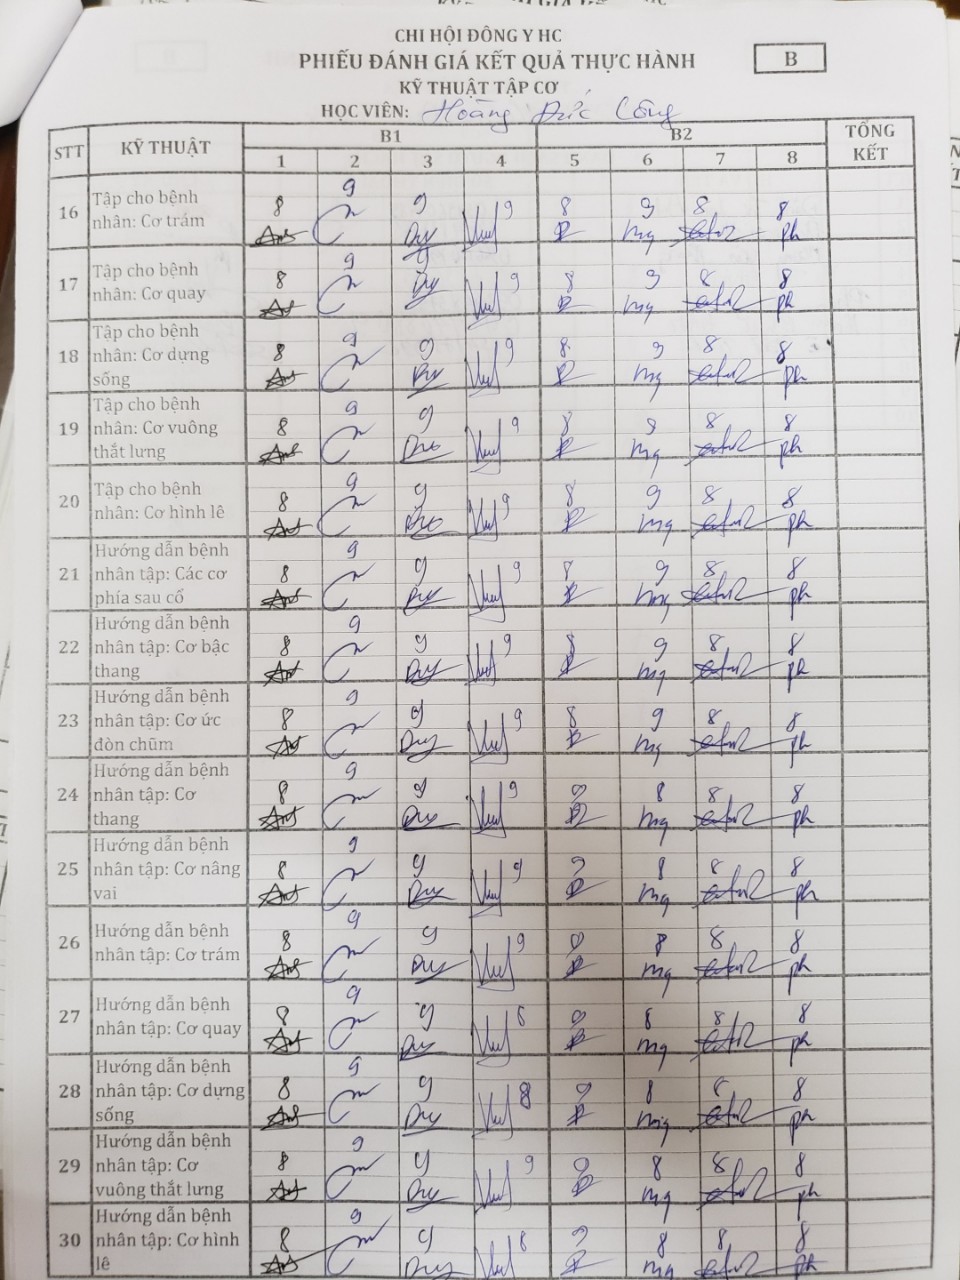 CHI HỘI ĐÔNG Y HC
PHIẾU ĐÁNH GIÁ KẾT QUẢ THỰC HÀNH
B
KỸ THUẬT TẬP CƠ
HỌC VIÊN: Hoàng Đức Công
STT KỸ THUẬT B1 B2 TỔNG KẾT
1 2 3 4 5 6 7 8
16 Tập cho bệnh nhân: Cơ trám 8 9 9 9 8 9 8 8
Duy mq ph
17 Tập cho bệnh nhân: Cơ quay 8 9 9 9 8 9 8 8
Duy mq ph
18 Tập cho bệnh nhân: Cơ dựng sống 8 9 9 9 8 9 8 8
Duy mq ph
19 Tập cho bệnh nhân: Cơ vuông thắt lưng 8 9 9 9 8 9 8 8
Duy mq ph
20 Tập cho bệnh nhân: Cơ hình lê 8 9 9 9 8 9 8 8
Duy mq ph
21 Hướng dẫn bệnh nhân tập: Các cơ phía sau cổ 8 9 9 9 8 9 8 8
Duy mq ph
22 Hướng dẫn bệnh nhân tập: Cơ bậc thang 8 9 9 9 8 9 8 8
Duy mq ph
23 Hướng dẫn bệnh nhân tập: Cơ ức đòn chũm 8 9 9 9 8 9 8 8
Duy mq ph
24 Hướng dẫn bệnh nhân tập: Cơ thang 8 9 9 9 9 8 8 8
Duy mq ph
25 Hướng dẫn bệnh nhân tập: Cơ nâng vai 8 9 9 9 9 8 8 8
Duy mq ph
26 Hướng dẫn bệnh nhân tập: Cơ trám 8 9 9 9 9 8 8 8
Duy mq ph
27 Hướng dẫn bệnh nhân tập: Cơ quay 8 9 9 8 9 8 8 8
Duy mq ph
28 Hướng dẫn bệnh nhân tập: Cơ dựng sống 8 9 9 8 9 8 8 8
Duy mq ph
29 Hướng dẫn bệnh nhân tập: Cơ vuông thắt lưng 8 9 9 9 9 8 8 8
Duy mq ph
30 Hướng dẫn bệnh nhân tập: Cơ hình lê 8 9 9 8 9 8 8 8
Duy mq ph